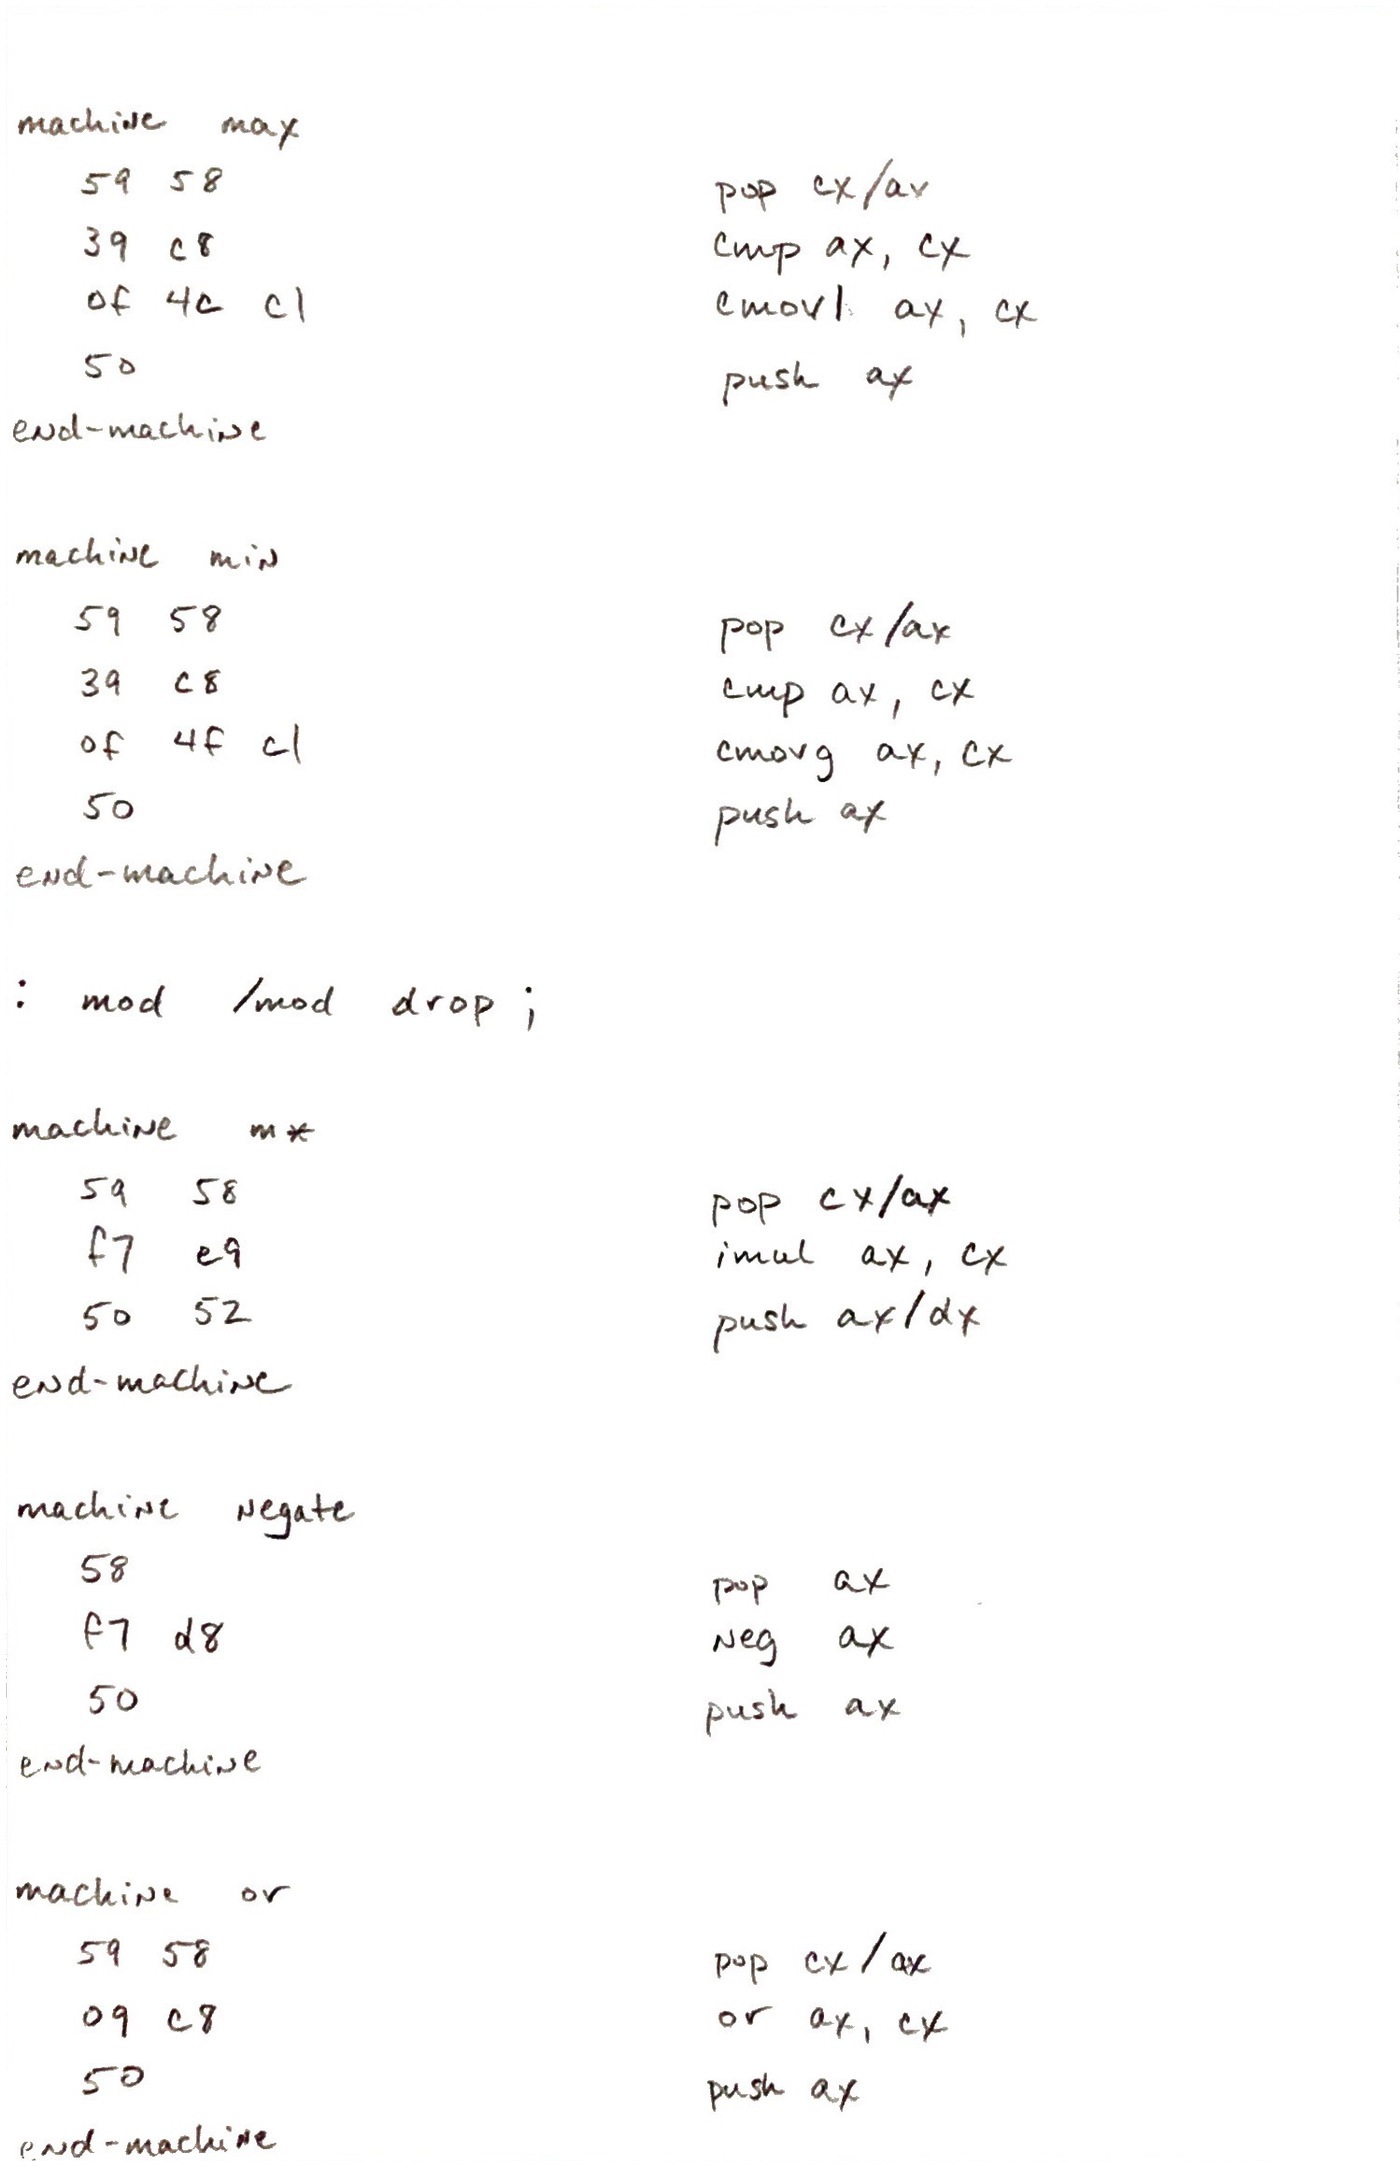 machine max
59 58 pop cx/ax
39 c8 cmp ax, cx
0f 4c c1 cmovl ax, cx
50 push ax
end-machine
machine min
59 58 pop cx/ax
39 c8 cmp ax, cx
0f 4f c1 cmovg ax, cx
50 push ax
end-machine
: mod /mod drop ;
machine m*
59 58 pop cx/ax
f7 e9 imul ax, cx
50 52 push ax/dx
end-machine
machine negate
58 pop ax
f7 d8 neg ax
50 push ax
end-machine
machine or
59 58 pop cx/ax
09 c8 or ax, cx
50 push ax
end-machine